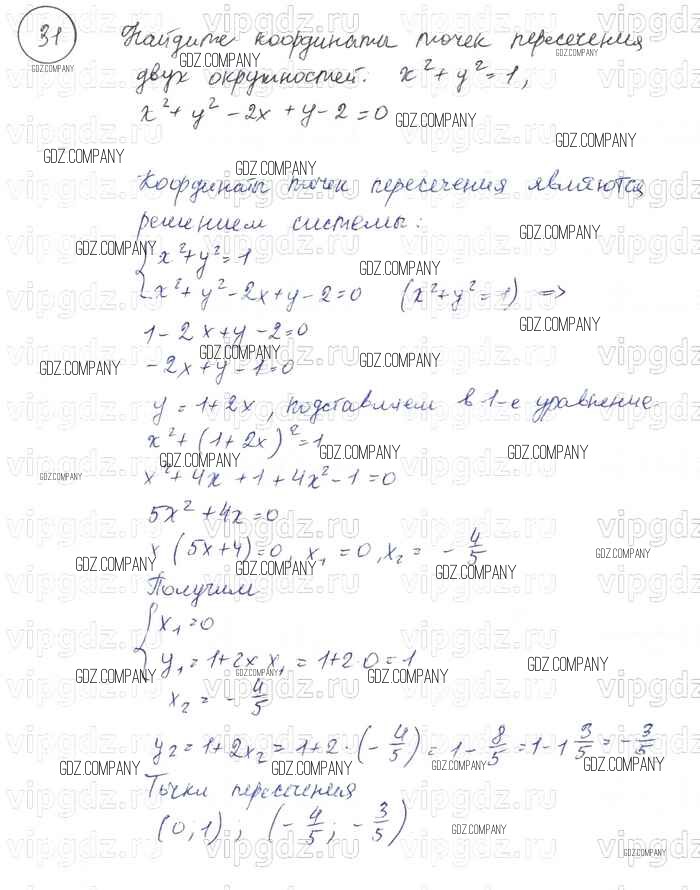 31 Найдите координаты точек пересечения
двух окружностей. x² + y² = 1,
x² + y² - 2x + y - 2 = 0
Координаты точек пересечения являются
решением системы:
{ x² + y² = 1
{ x² + y² - 2x + y - 2 = 0 (x² + y² = 1) =>
1 - 2x + y - 2 = 0
-2x + y - 1 = 0
y = 1 + 2x, подставляем в 1-е уравнение
x² + (1 + 2x)² = 1
x² + 4x + 1 + 4x² - 1 = 0
5x² + 4x = 0
x (5x + 4) = 0, x₁ = 0, x₂ = - 4/5
Получим
{ x₁ = 0
{ y₁ = 1 + 2x x₁ = 1 + 2·0 = 1
x₂ = - 4/5
y₂ = 1 + 2x₂ = 1 + 2·(- 4/5) = 1 - 8/5 = 1 - 1 3/5 = - 3/5
Точки пересечения
(0, 1); (- 4/5; - 3/5)
GDZ.COMPANY
vipgdz.ru